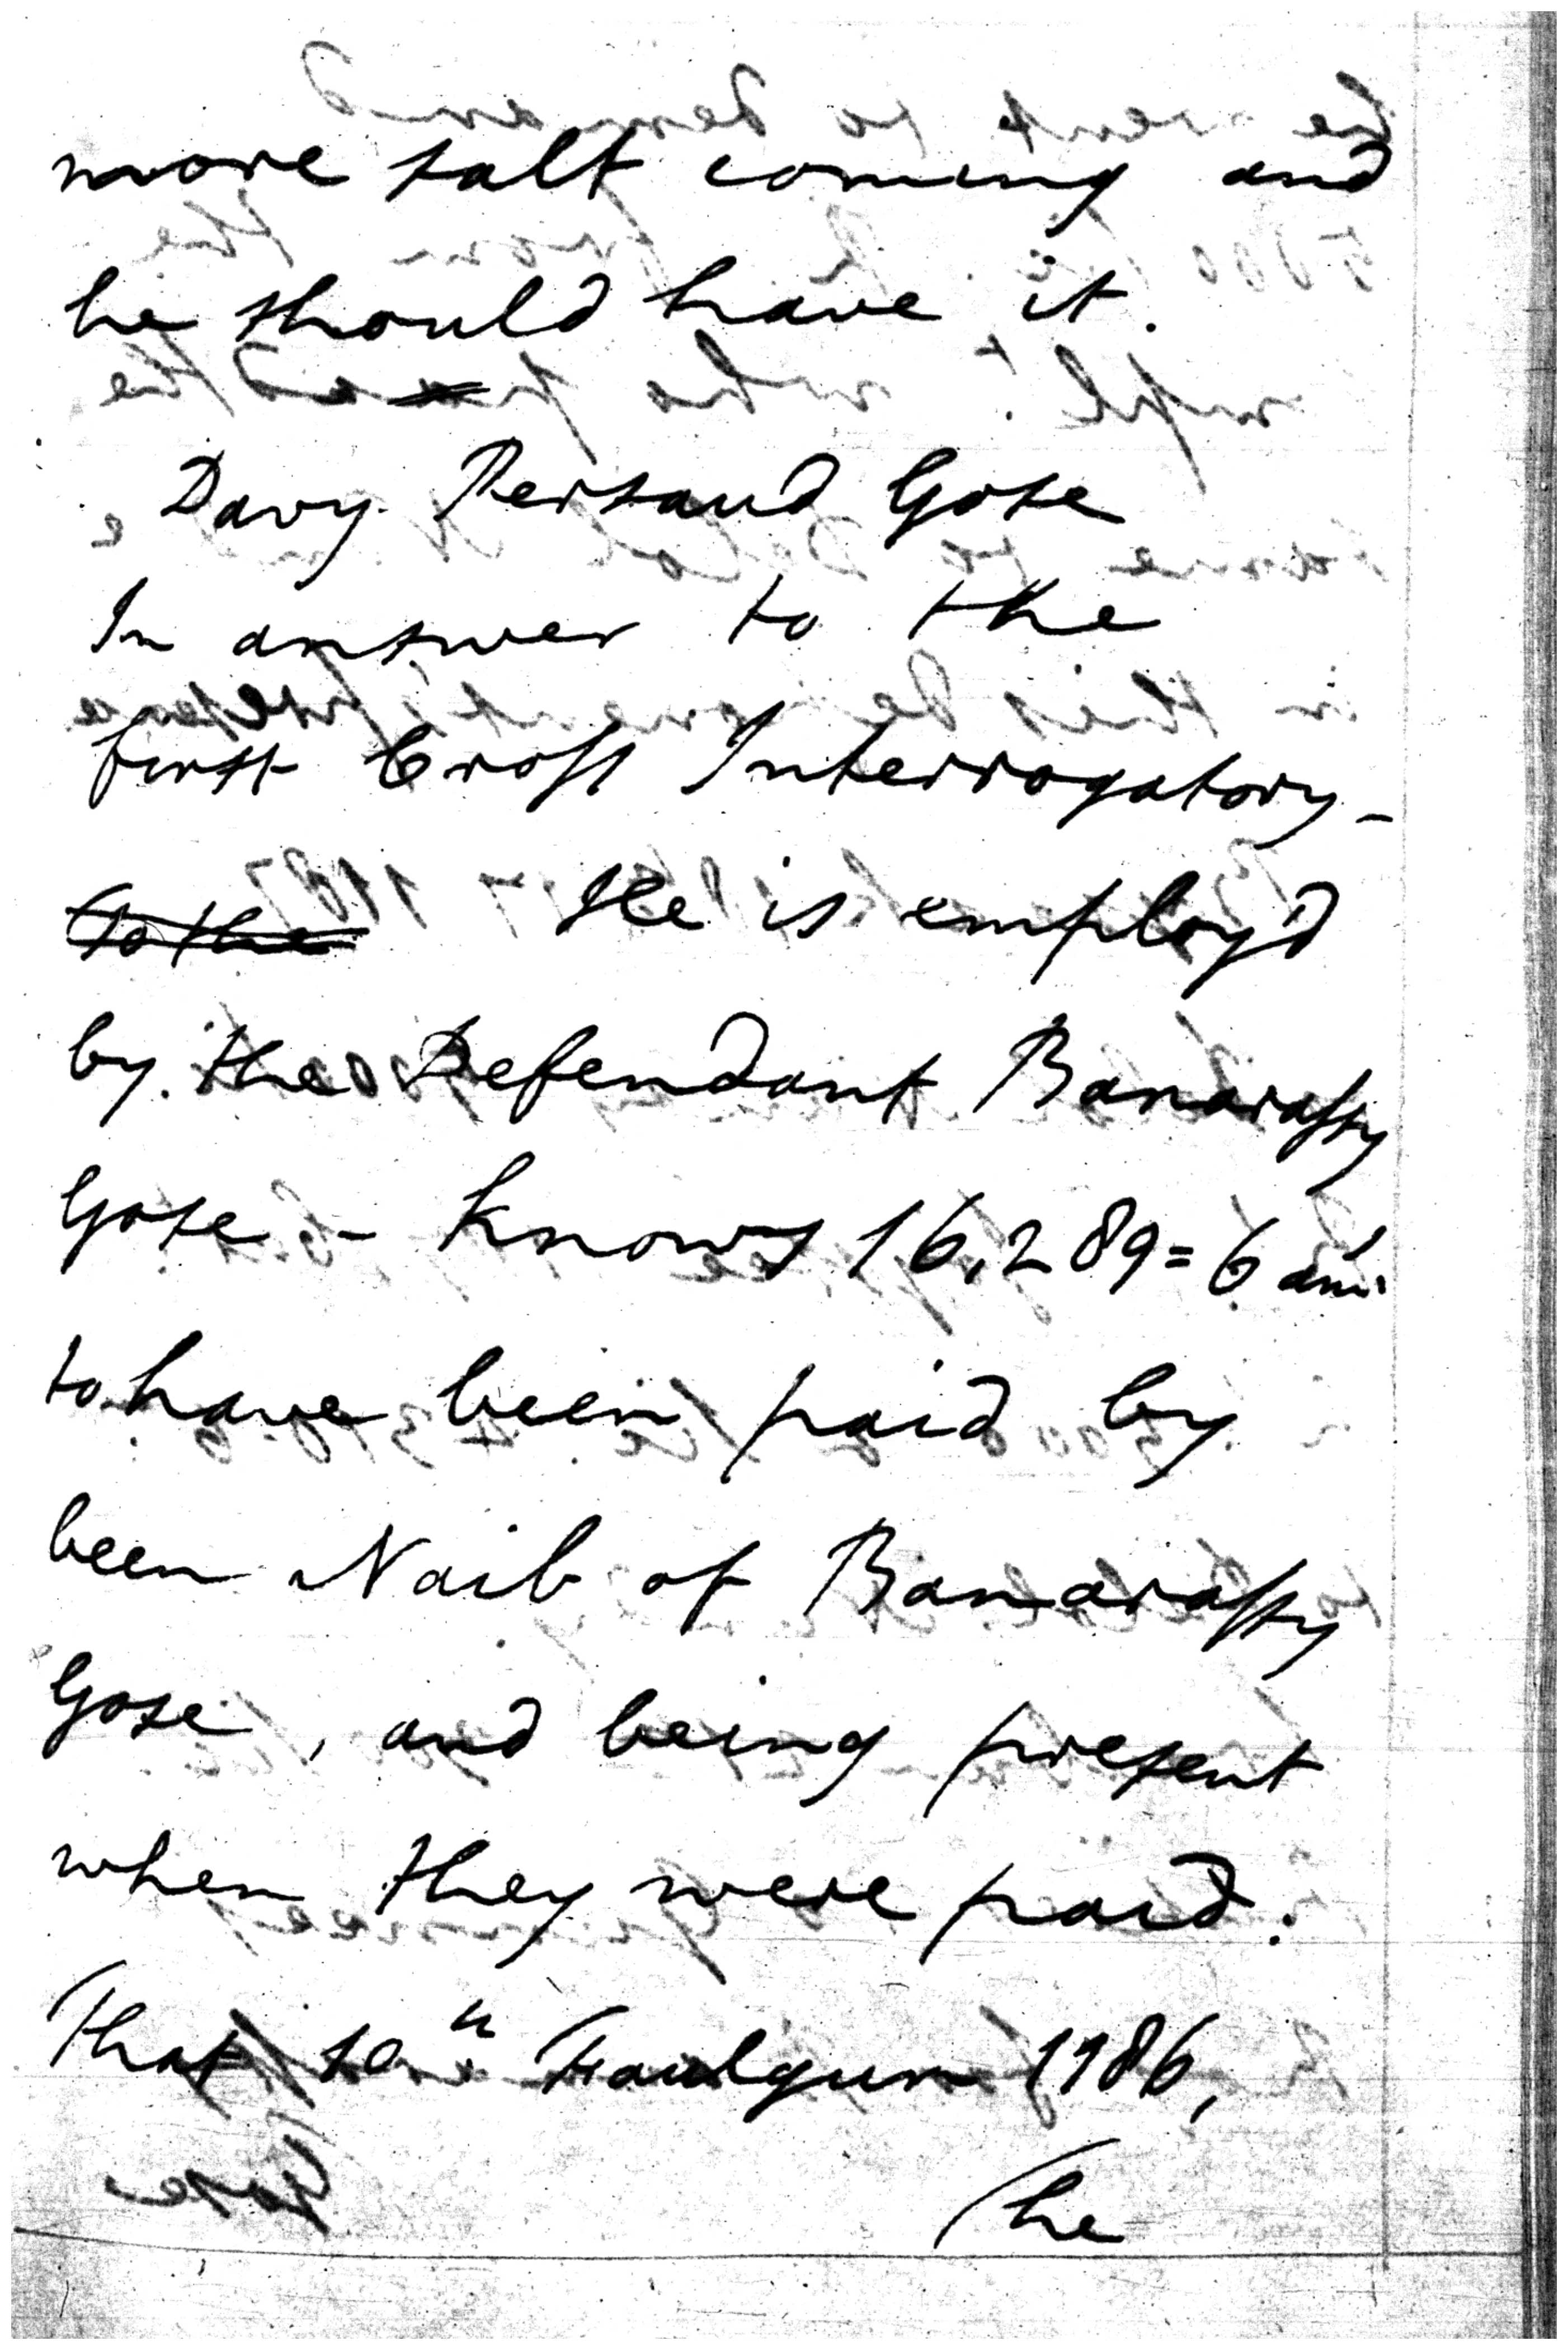 more salt coming and
he should have it.
Davy Persaud Gose
In answer to the
first Cross Interrogatory –
To the He is employ'd
by the Defendant Banarassy
Gose – Knows 16,289=6 an.
to have been paid by
been Naib of Banarassy
Gose, and being present
when they were paid.
That 10th Faulgun 1186,
The